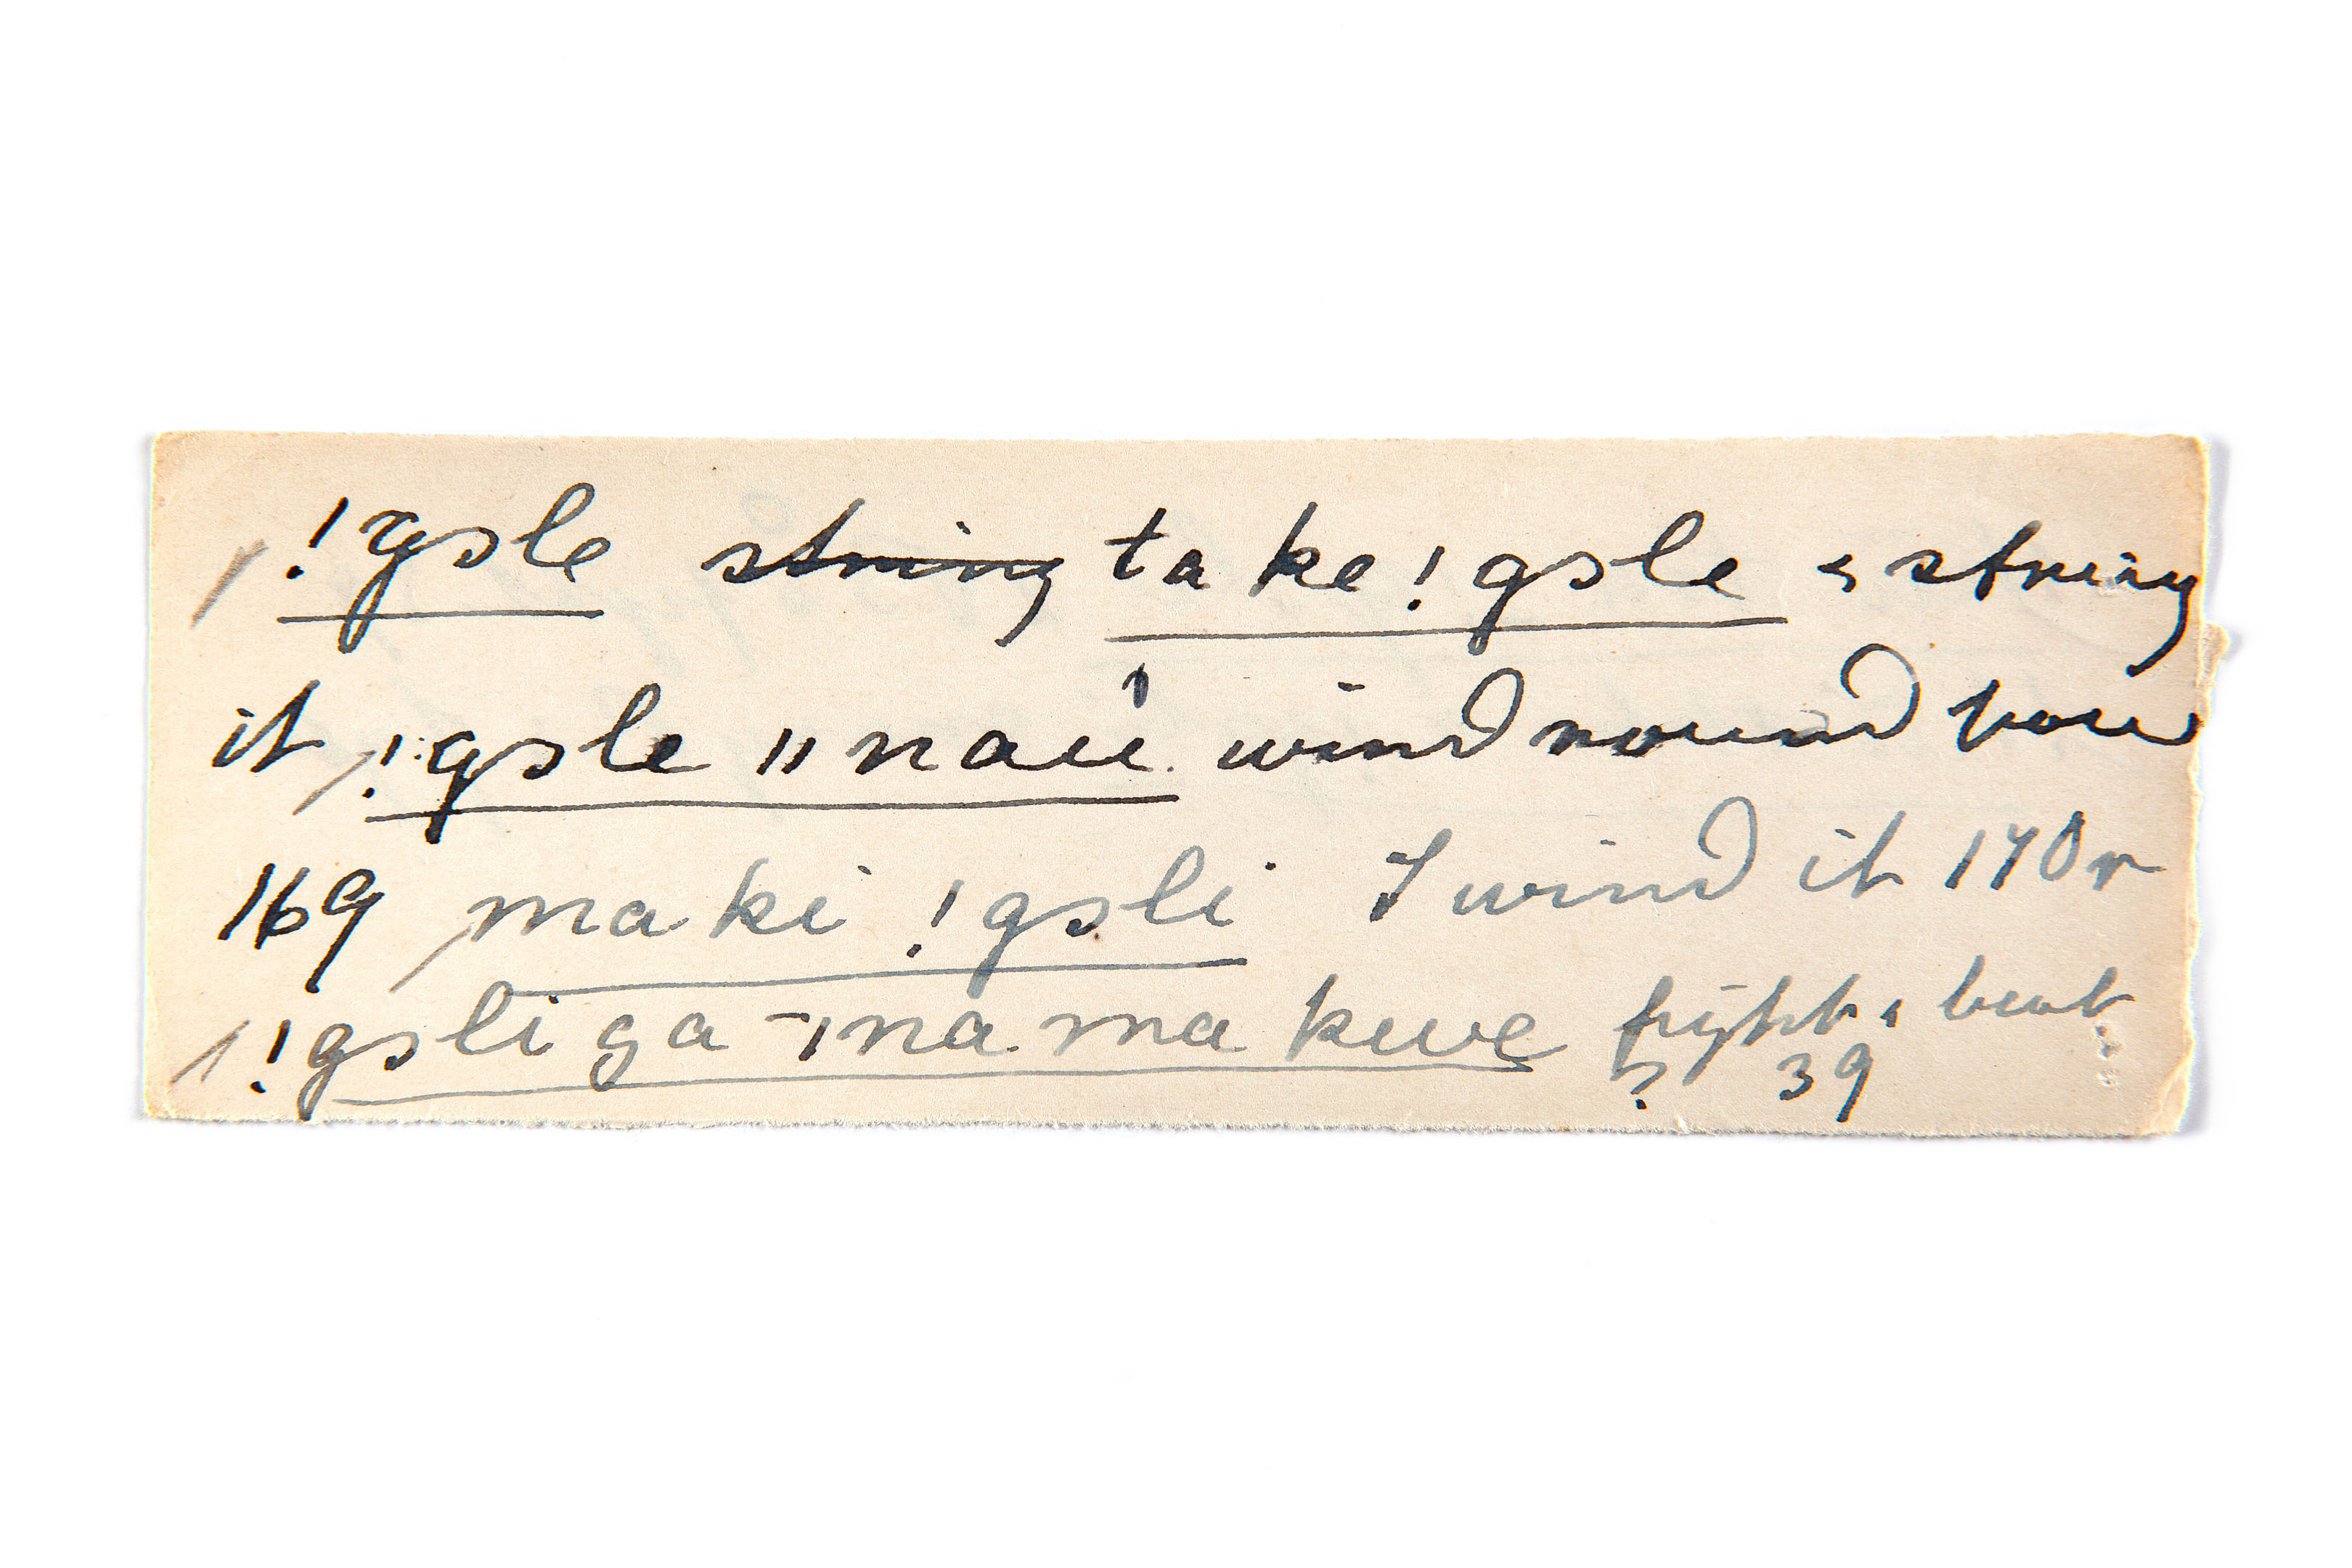 !gɔle string ta ke !gɔle = string
it !gɔle ǁ naũ wind round bow
169 ma ki !gɔli I wind it 170 r
!gɔli ga - ǀna ma kwe fight & beat
? 39